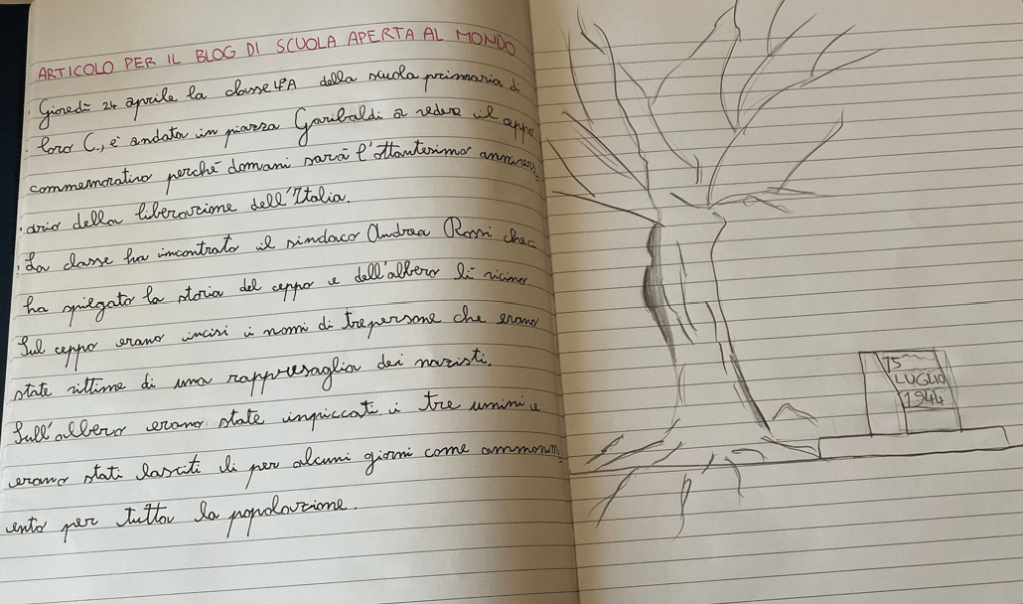 ARTICOLO PER IL BLOG DI SCUOLA APERTA AL MONDO
Giovedì 24 aprile la classe 4ªA della scuola primaria di
loro C, è andata in piazza Garibaldi a vedere il ceppo
commemorativo perché domani sarà l'ottantesimo annivers
ario della liberazione dell'Italia.
La classe ha incontrato il sindaco Andrea Rossi che ci
ha spiegato la storia del ceppo e dell'albero lì vicino.
Sul ceppo erano incisi i nomi di tre persone che erano
state vittime di una rappresaglia dei nazisti.
Sull'albero erano state inpiccati i tre umini e
erano stati lasciti li per alcuni giorni come ammonim
ento per tutta la popolazione.
15
LUGLIO
1944